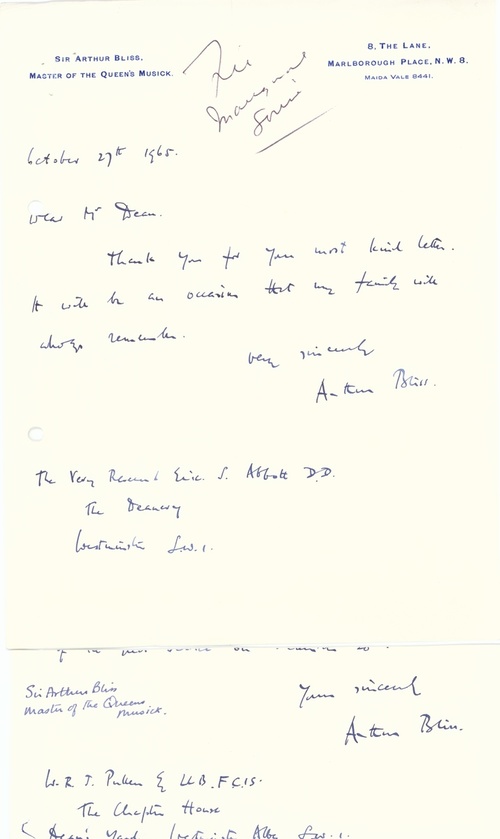 Sir Arthur Bliss.
Master of the Queen's Musick.
8, The Lane,
Marlborough Place, N.W.8.
Maida Vale 8441.
File
Inaugural
Service
October 27th 1965.
Dear Mr Dean.
Thank you for your most kind letter.
It will be an occasion that my family will
always remember.
Very sincerely
Arthur Bliss.
The Very Reverend Eric. S. Abbott D.D.
The Deanery
Westminster S.W.1.
Sir Arthur Bliss
Master of the Queens
Musick.
Yours sincerely
Arthur Bliss.
W. R. J. Pullen Esq LLB. F.C.I.S.
The Chapter House
Dean's Yard Westminster Abbey S.W.1.